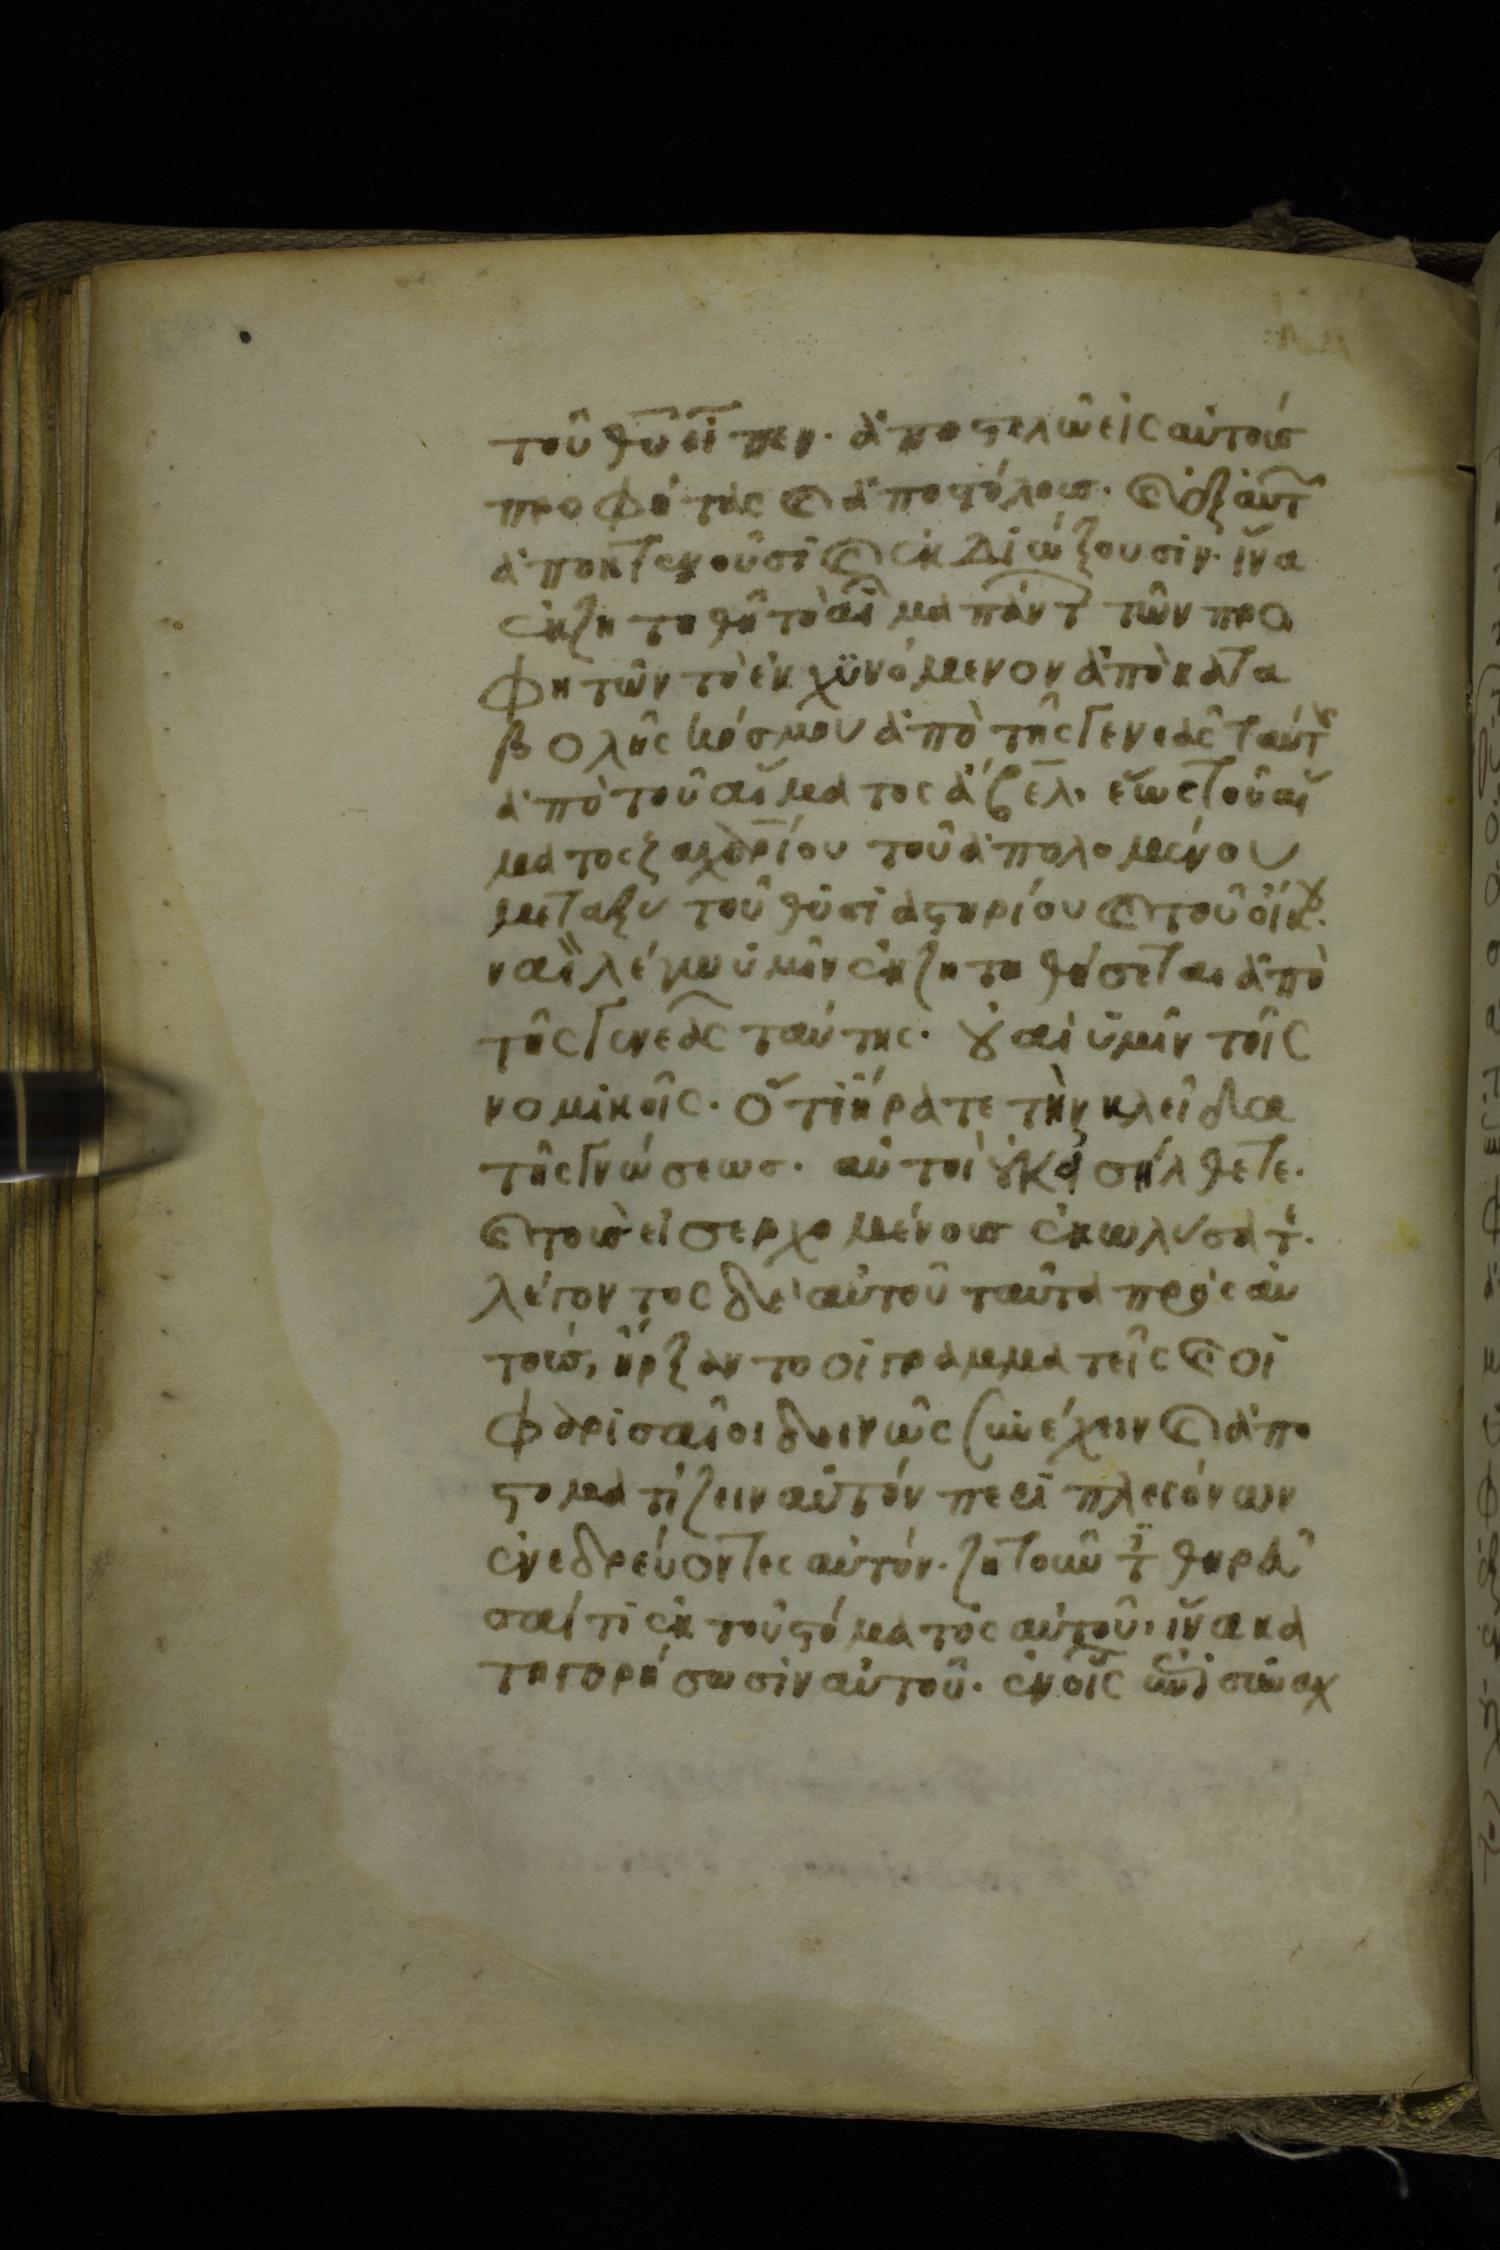 τοῦ θυ εἶπεν. ἀποστελῶ εἰς αὐτοὺς
προφήτας καὶ ἀποστόλους. καὶ ἐξ αὐτ
ἀποκτενοῦσι καὶ ἐκδιώξουσιν. ἵνα
ἐκζητηθῆ τὸ αἷμα πάντ τῶν προ
φητῶν τὸ ἐκχϋνόμενον ἀπὸ κατα
βολῆς κόσμου ἀπὸ τῆς γενεᾶς ταύτ
ἀπὸ τοῦ αἵματος ἄβελ. ἕως τοῦ αἵ
ματος ζαχαρίου τοῦ ἀπολομένου
μεταξὺ τοῦ θυσιαστηρίου καὶ τοῦ οἴκου.
ναὶ λέγω ὑμῖν ἐκζητηθήσεται ἀπὸ
τῆς γενεᾶς ταύτης. οὐαὶ ὑμῖν τοῖς
νομικοῖς. ὅτι ἤρατε τὴν κλεῖδα
τῆς γνώσεως. αὐτοὶ οὐκ εἰσήλθετε.
καὶ τοὺς εἰσερχομένους ἐκωλύσατε.
λέγοντος δὲ αὐτοῦ ταῦτα πρὸς αὐ
τούς, ἤρξαντο οἱ γραμματεῖς καὶ οἱ
φαρισαῖοι δεινῶς ἐνέχειν καὶ ἀπο
στοματίζειν αὐτὸν περὶ πλειόνων
ἐνεδρεύοντες αὐτόν. ζητοῦντ θηρεῦ
σαί τι ἐκ τοῦ στόματος αὐτοῦ, ἵνα κα
τηγορήσωσιν αὐτοῦ. ἐν οἷς ἐπισυναχ